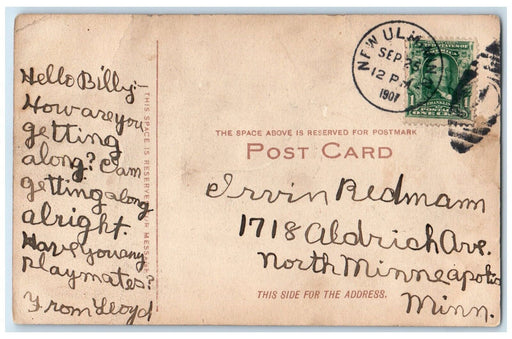 Hello Billy:
How are you
getting
along? I am
getting along
alright.
Have you any
playmates?
From Lloyd
THIS SPACE IS RESERVED FOR MESSAGE
NEW ULM
SEP 25
12 PM
1907
ONE CENT
THE SPACE ABOVE IS RESERVED FOR POSTMARK
POST CARD
Irvin Redmann
1718 Aldrich Ave.
North Minneapolis
Minn.
THIS SIDE FOR THE ADDRESS.